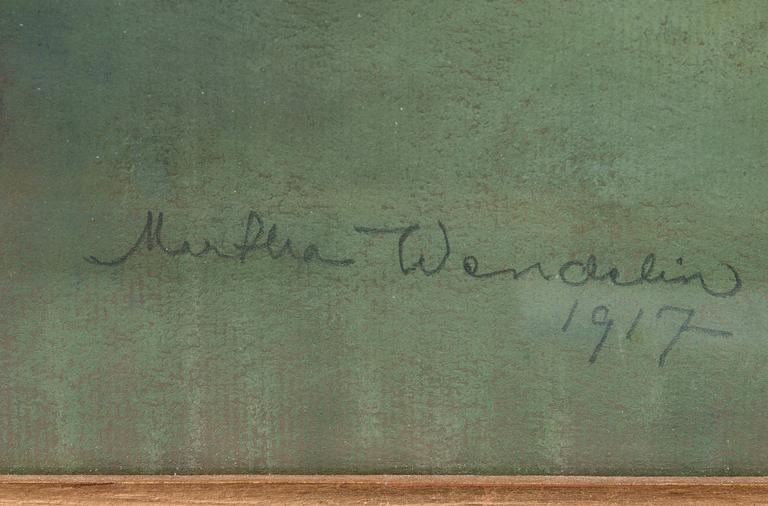 Martha Wendelin
1917